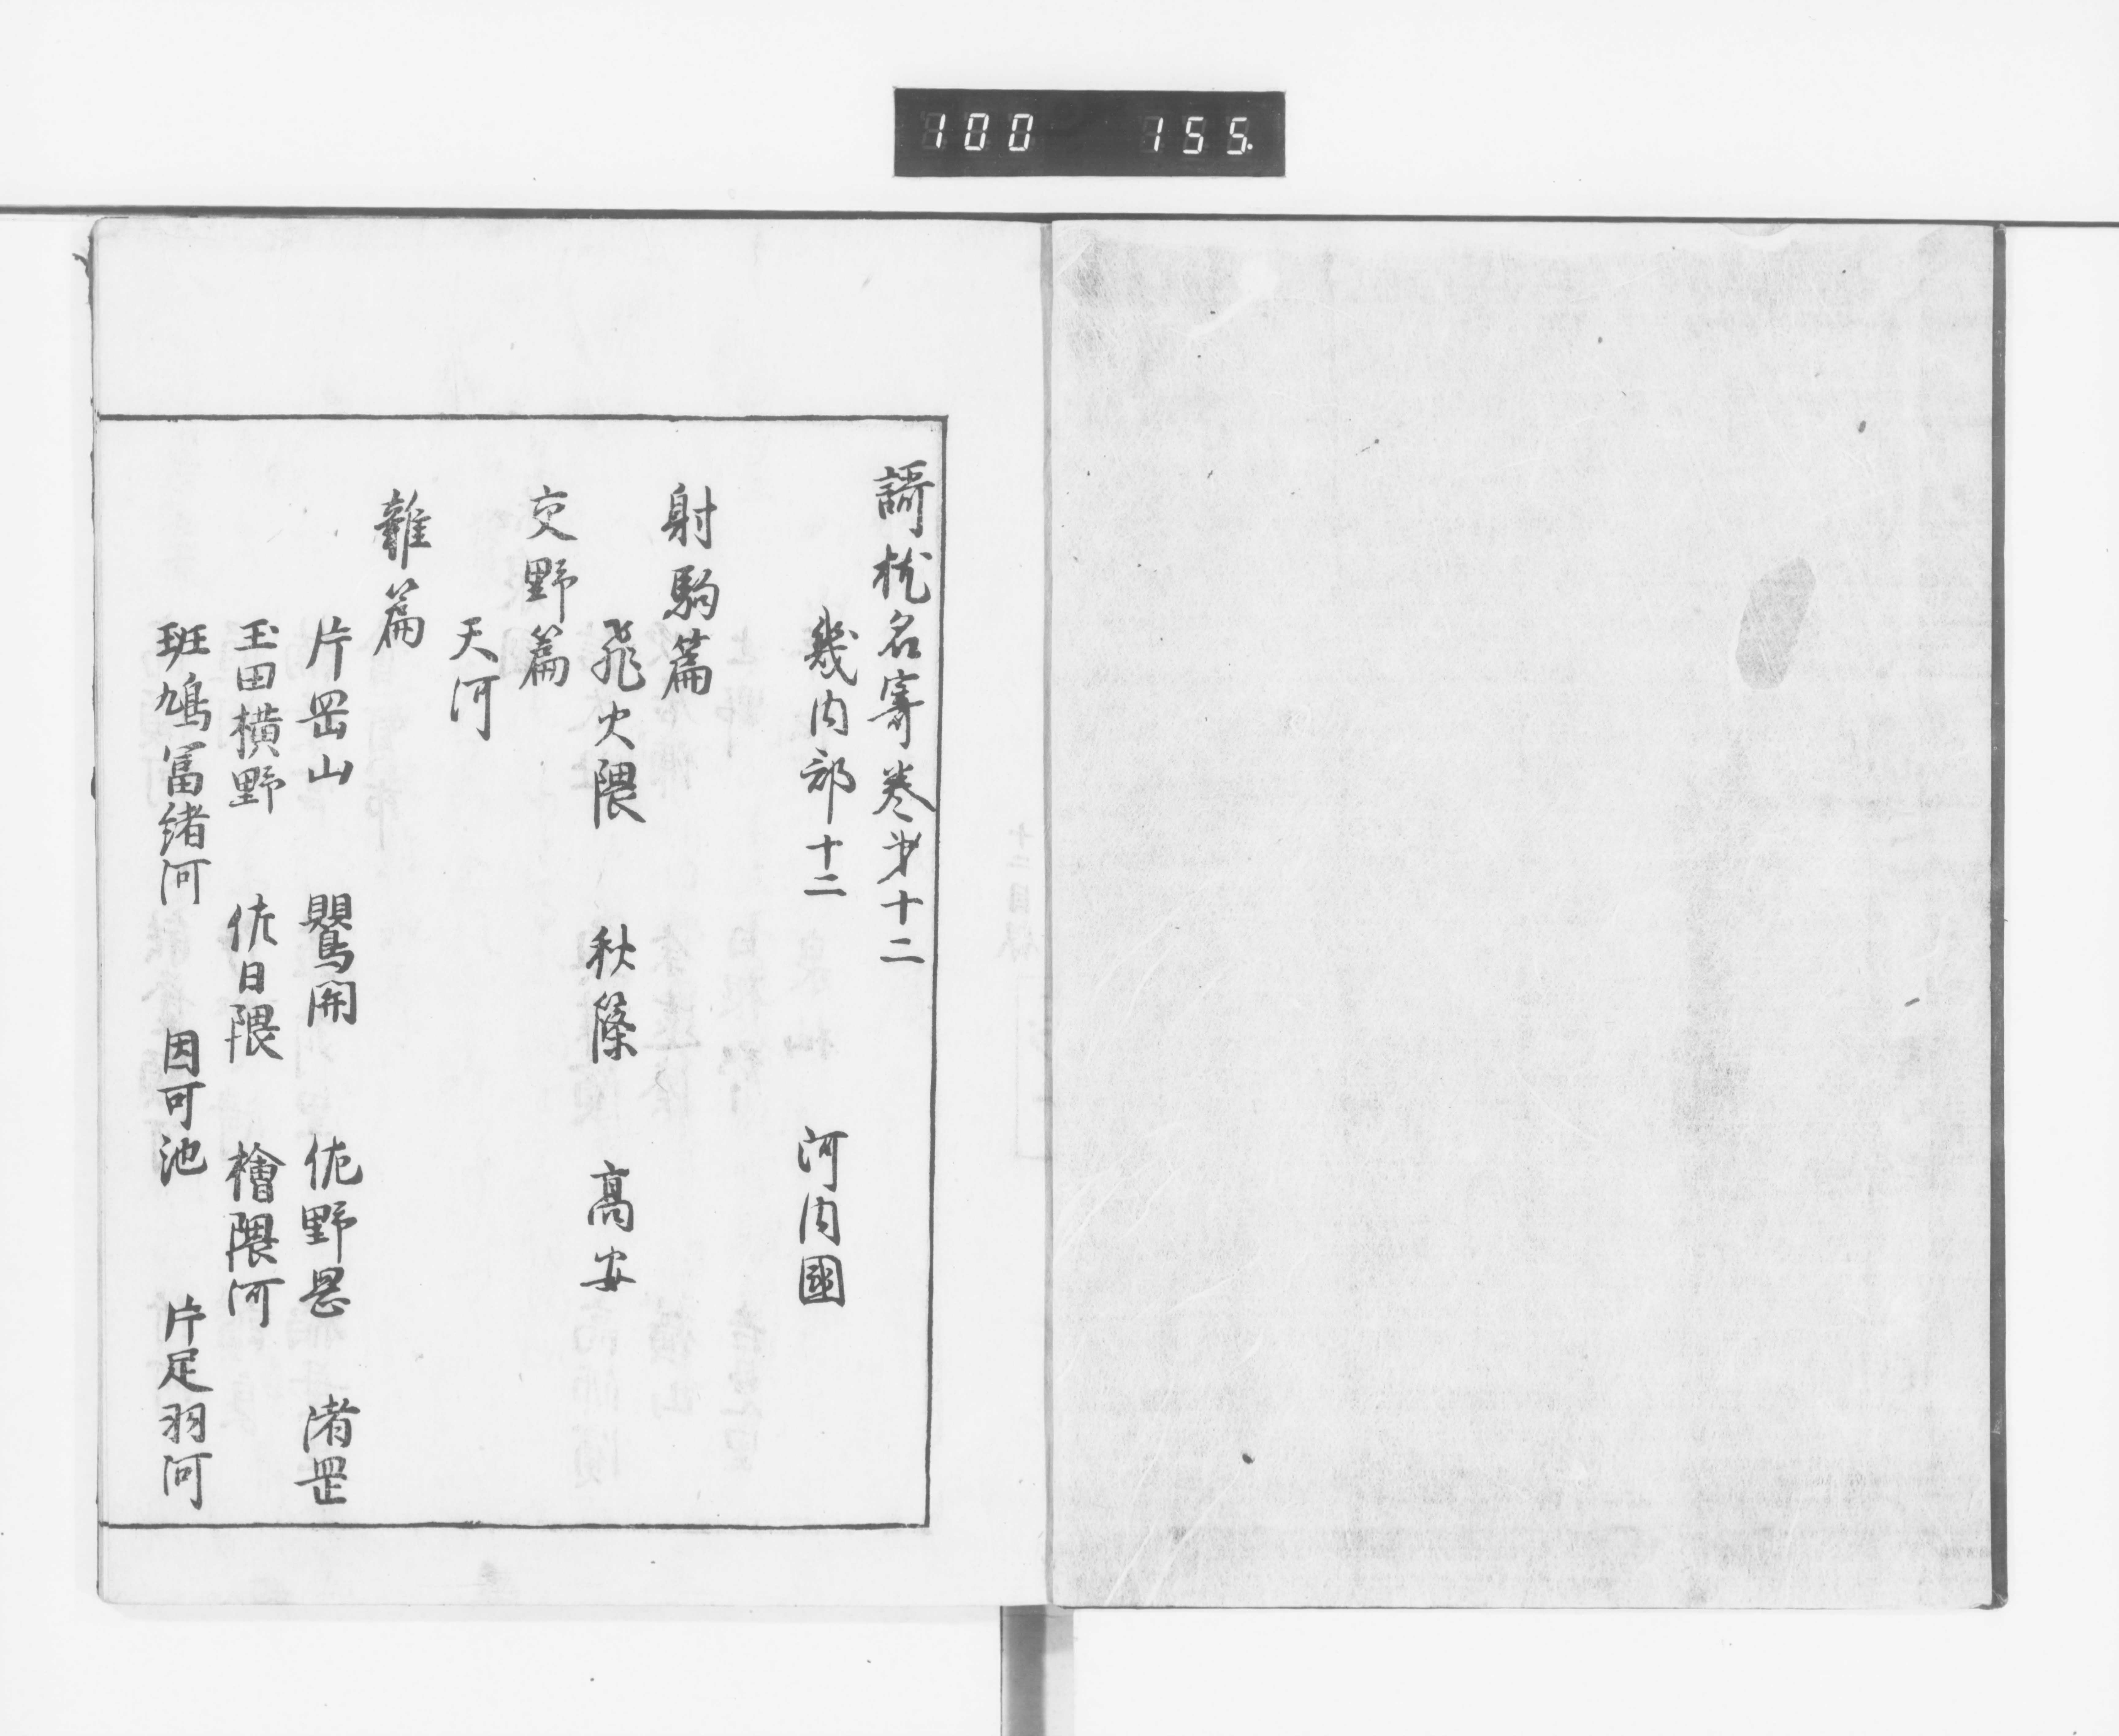 100 155.
謌枕名寄卷第十二
幾内部十二 河内國
射駒篇
飛火隈 秋篠 髙安
交野篇
天河
雜篇
片岡山 鸎開 佐野岡 渚岡
玉田横野 佐日隈 檜隈河
班鳩冨緒河 因可池 片足羽河